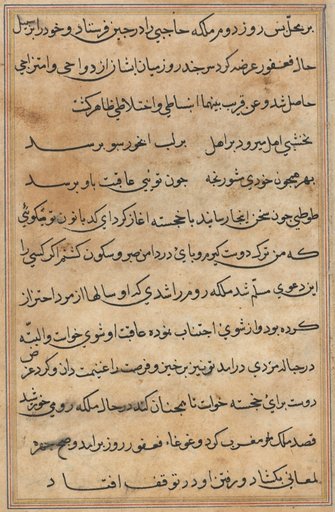 بر محل پس روز دوم ملکه حاجبی را در چین فرستاد و خود را بر سبیل
حال فغفور عرضه کرد پس چند روز میان ایشان ازدواجی و امتزاجی
حاصل شد و عن قریب بینهما انبساطی و اختلاطی ظاهر گشت
نخشبی اهل میرود بر اهل بر لب انجور سبو برسد
بهر همچون خودی شود رنجه چون تویی عاقبت باو برسد
طوطی چون سخن اینجا رسانید با خجسته آغاز کرد ای کدبانو تو میگوئی
که من ترک دوست گیرم و پای در دامن صبر و سکون کشم اگر کسی را
این دعوی مسلم شد ملکه روم را شدی که او سالها از مرد احتراز
کرده بود و از شوی اجتناب نموده عاقبت او شوی خواست و البته
در حباله مردی درآمد تو نیز برخیز و فرصت را غنیمت دان و کرد عرض
دوست برای خجسته خواست تا همچنان کند در حال ملکه رومی خورشید
قصد ملک مغرب کرد و غوغاء فغفور روز برآمد و صبح چهره
لمعانی بگشاد و رفتن او در توقف افتاد